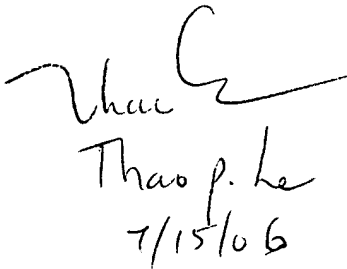 Thao p. Le
7/15/06